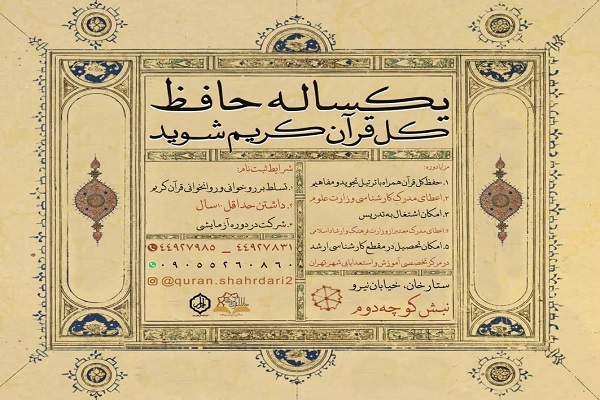 یکساله حافظ
کل قرآن کریم شوید
مزایا دوره:
۱. حفظ کل قرآن همراه با ترتیل تجوید و مفاهیم
۲. اعطای مدرک کارشناسی وزارت علوم
۳. امکان اشتغال به تدریس
۴. اعطای مدرک معتبر از وزارت فرهنگ و ارشاد اسلامی
۵. امکان تحصیل در مقطع کارشناسی ارشد
در مرکز تخصصی آموزش و استعدادیابی شهر تهران
ستارخان، خیابان نیرو
نبش کوچه دوم
شرایط ثبت نام:
۱. تسلط بر روخوانی و روانخوانی قرآن کریم
۲. داشتن حداقل ۱۰ سال
۳. شرکت در دوره آزمایشی
۴۴۹۲۷۸۳۱ _ ۴۴۹۲۷۹۸۵
۰۹۰۵۵۲۶۰۸۶۰
@quran.shahrdari2